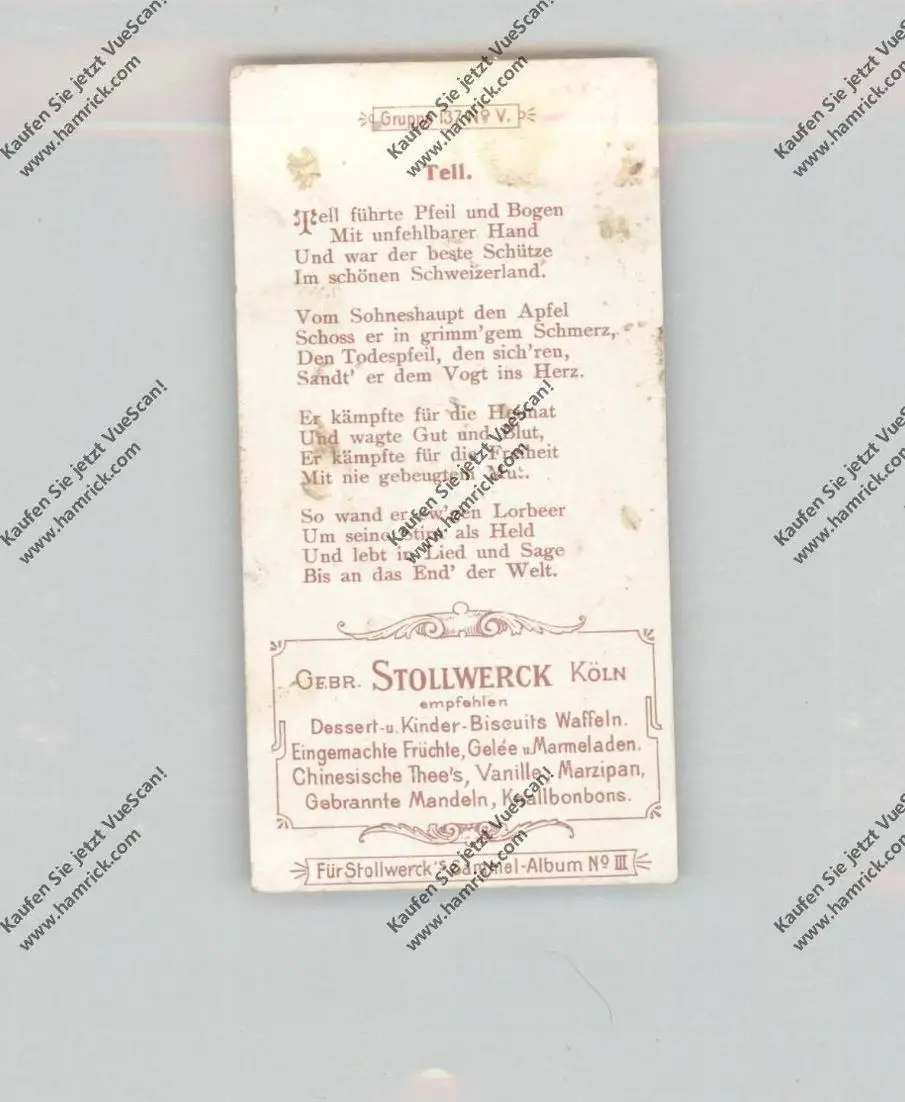 Gruppe 137 No V.
Tell.
Tell führte Pfeil und Bogen
Mit unfehlbarer Hand
Und war der beste Schütze
Im schönen Schweizerland.
Vom Sohneshaupt den Apfel
Schoss er in grimm'gem Schmerz,
Den Todespfeil, den sich'ren,
Sandt' er dem Vogt ins Herz.
Er kämpfte für die Heimat
Und wagte Gut und Blut,
Er kämpfte für die Freiheit
Mit nie gebeugtem Mut.
So wand er ew'gen Lorbeer
Um seine Stirn als Held
Und lebt in Lied und Sage
Bis an das End' der Welt.
GEBR. STOLLWERCK KÖLN
empfehlen
Dessert-u. Kinder-Biscuits Waffeln.
Eingemachte Früchte, Gelée u. Marmeladen.
Chinesische Thee's, Vanille, Marzipan,
Gebrannte Mandeln, Knallbonbons.
Für Stollwerck's Sammel-Album No III
Kaufen Sie jetzt VueScan!
www.hamrick.com
Kaufen Sie jetzt VueScan!
www.hamrick.com
Kaufen Sie jetzt VueScan!
www.hamrick.com
Kaufen Sie jetzt VueScan!
www.hamrick.com
Kaufen Sie jetzt VueScan!
www.hamrick.com
Kaufen Sie jetzt VueScan!
www.hamrick.com
Kaufen Sie jetzt VueScan!
www.hamrick.com
Kaufen Sie jetzt VueScan!
www.hamrick.com
Kaufen Sie jetzt VueScan!
www.hamrick.com